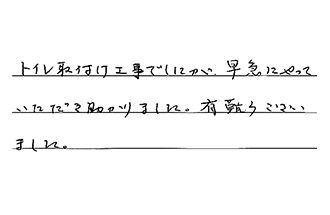 トイレ取付け工事でしたが、早急にやって
いただき助かりました。有難うござい
ました。